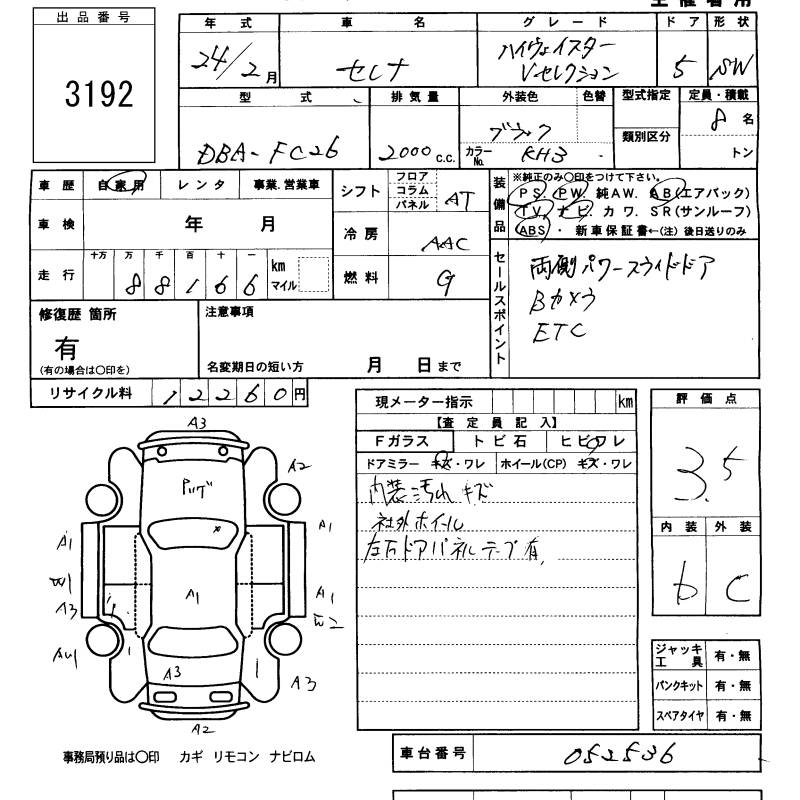 出品番号
3192
年式 車名 グレード ドア 形状
24/2月 セレナ ハイウェイスター Vセレクション 5 SW
型式 排気量 外装色 色替 型式指定 定員・積載
類別区分
DBA-FC26 2000 c.c. ブラック カラーNo. KH3 8名
トン
車歴 自家用 レンタ 事業.営業車
車検 年 月
走行 十万 万 千 百 十 一
88166 km マイル
シフト フロア コラム パネル AT
冷房 AAC
燃料 G
装備品
※純正のみ〇印をつけて下さい。
PS. PW. 純AW. AB(エアバック)
TV. ナビ. カワ. SR(サンルーフ)
ABS・ 新車保証書←(注)後日送りのみ
セールスポイント
両側パワースライドドア
Bカメラ
ETC
修復歴 箇所
有
(有の場合は〇印を)
注意事項
名変期日の短い方 月 日まで
リサイクル料 12260円
現メーター指示 km
【査定員記入】
Fガラス トビ石 ヒビワレ
ドアミラー キズ・ワレ ホイール(CP) キズ・ワレ
内装汚れ キズ
社外ホイール
左右ドアパネルテープ有
評価点
3.5
内装 外装
b C
A3
A2
A1
A1
W1
A3
A1
A1
A3
A3
A2
ジャッキ工具 有・無
パンクキット 有・無
スペアタイヤ 有・無
事務局預り品は〇印 カギ リモコン ナビロム
車台番号 052536